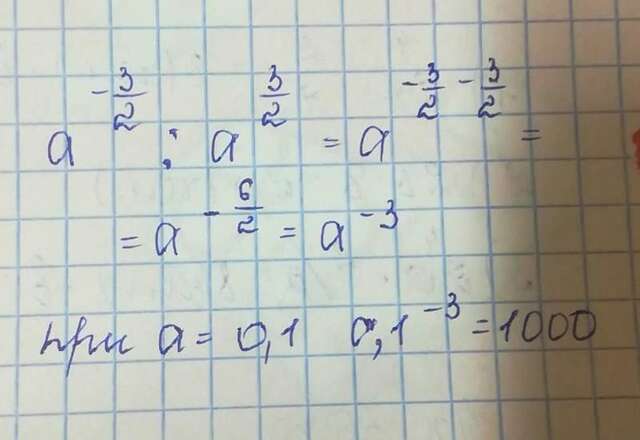 a^{-3/2} : a^{3/2} = a^{-3/2 - 3/2} =
= a^{-6/2} = a^{-3}
при a = 0,1 0,1^{-3} = 1000